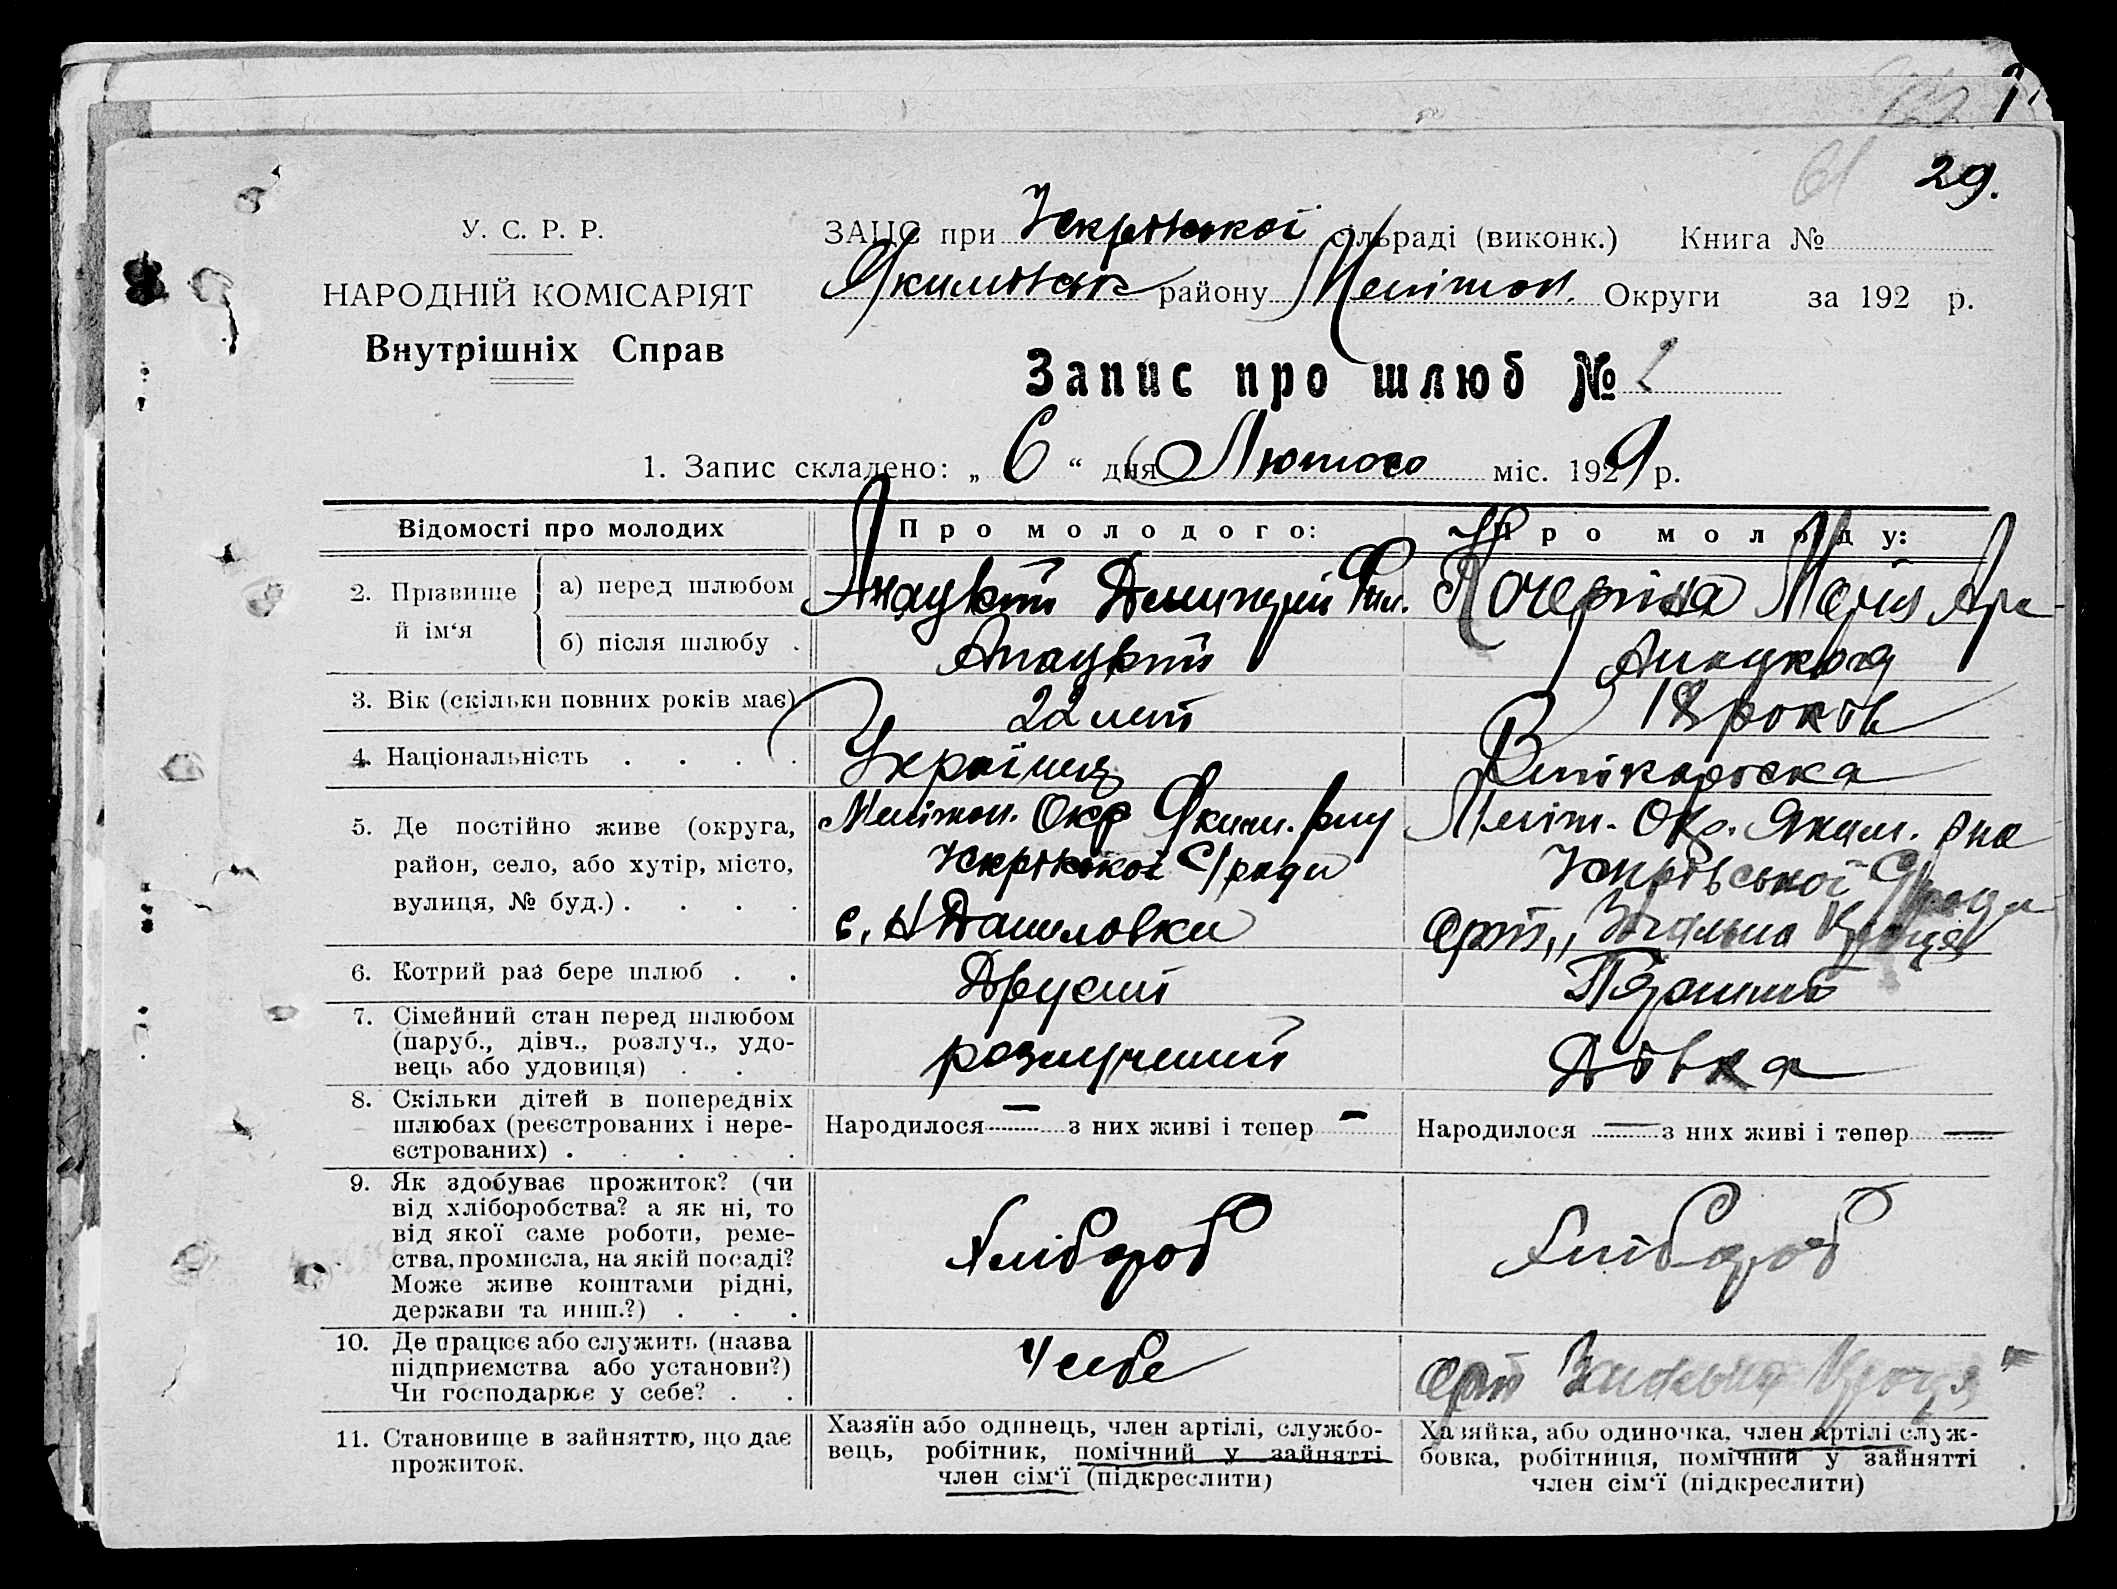 29.
61
У. С. Р. Р.
НАРОДНІЙ КОМІСАРІЯТ
Внутрішніх Справ
ЗАГС при сільраді (виконк.) Книга №
Якимівськ району Мелітоп. Округи за 192 р.
Запис про шлюб № 2
1. Запис складено: „ 6 “ дня Лютого міс. 1929 р.
Відомості про молодих
Про молодого:
Про молоду:
2. Прізвище й ім‘я
а) перед шлюбом
Дмитрій Фил.
Кочергіна Марія
б) після шлюбу .
Апацкий
Апацкая
3. Вік (скільки повних років має)
22 літ
18 років
4. Національність . . . .
Українец
5. Де постійно живе (округа,
район, село, або хутір, місто,
вулиця, № буд.) . . . .
Мелітоп. Окр Яким. рну
С/ради
с. Н Даниловки
Меліт. Окр. Яким. рна
С/ради
Арт. „
6. Котрий раз бере шлюб . .
Другий
Перший
7. Сімейний стан перед шлюбом
(паруб., дівч., розлуч., удо-
вець або удовиця) . .
розлучений
Дівка
8. Скільки дітей в попередніх
шлюбах (реєстрованих і нере-
єстрованих) . . . . .
Народилося — з них живі і тепер —
Народилося — з них живі і тепер —
9. Як здобуває прожиток? (чи
від хліборобства? а як ні, то
від якої саме роботи, реме-
ства, промисла, на якій посаді?
Може живе коштами рідні,
держави та инш.?) . . .
Хлібороб
Хлібороб
10. Де працює або служить (назва
підприємства або установи?)
Чи господарює у себе? . .
У себе
Арт
11. Становище в зайняттю, що дає
прожиток.
Хазяїн або одинець, член артілі, службо-
вець, робітник, помічний у зайнятті
член сім‘ї (підкреслити)
Хазяйка, або одиночка, член артілі служ-
бовка, робітниця, помічний у зайнятті
член сім‘ї (підкреслити)